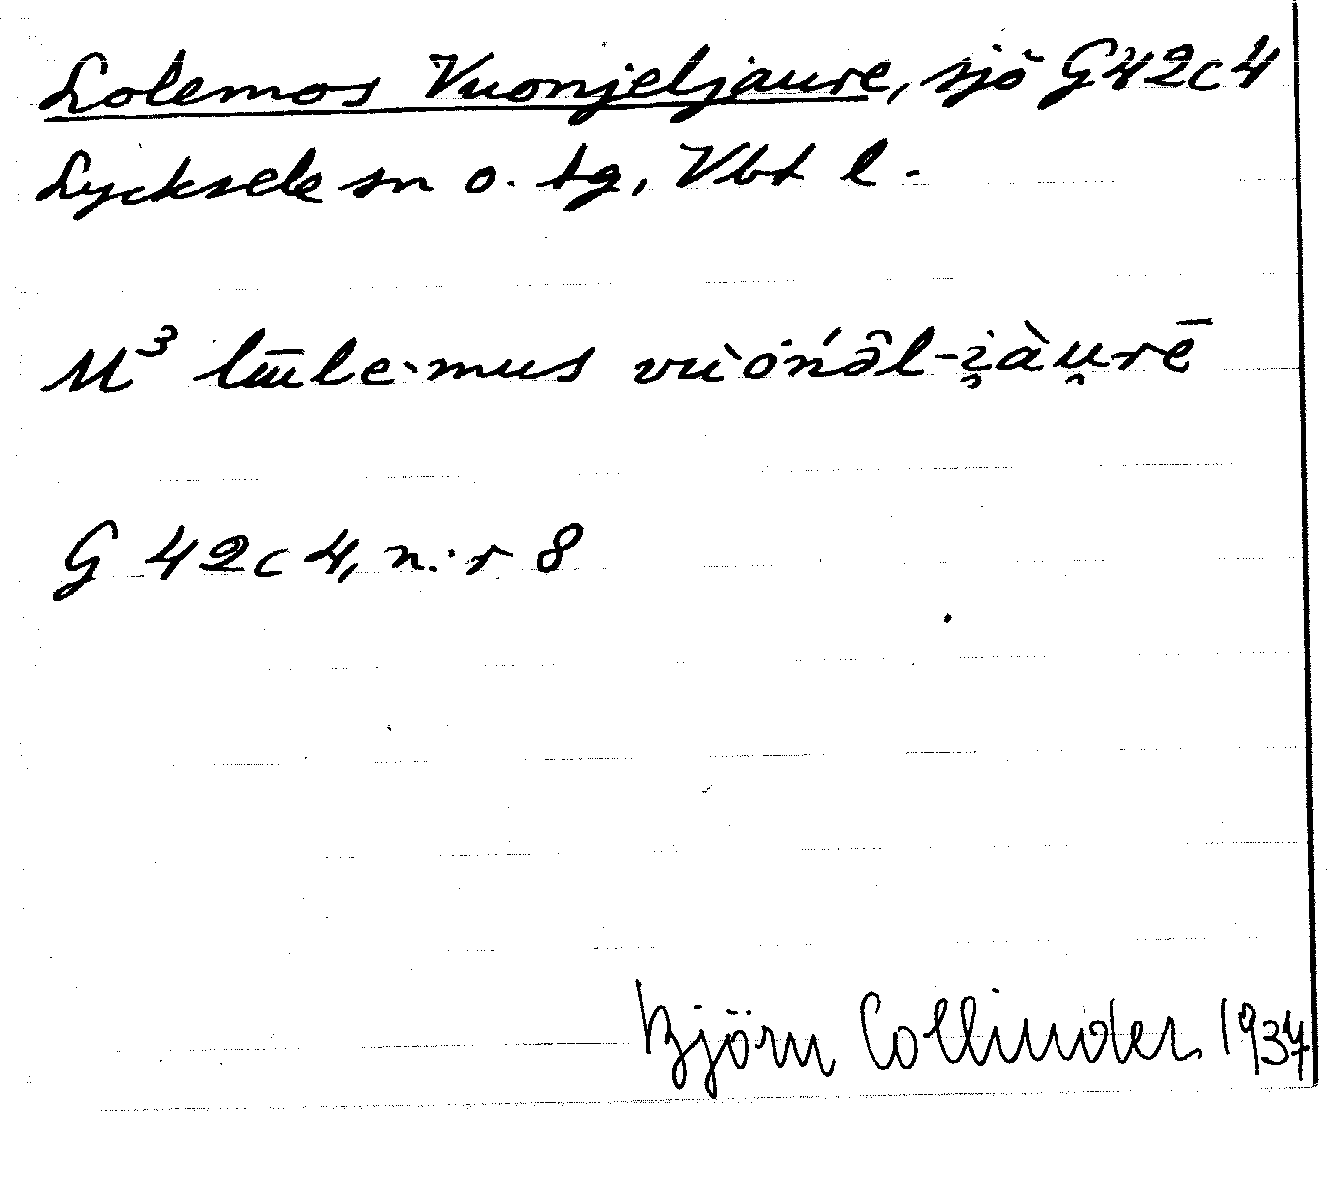 Lolemos Vuonjeljaure, sjö G42c4
Lycksele sn o. tg, Vbt l.
M³ lūle·mus vùȯńâl-i̯àu̯rē
G 42c4, n:r 8
Björn Collinder 1937